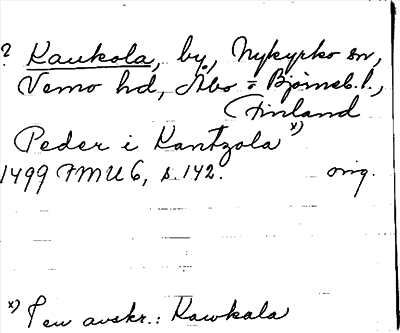 ? Kaukola, by, Nykyrko sn,
Vemo hd, Åbo = Björneb. l.,
Finland
Peder i Kantzola x)
1499 FMU 6, s. 142. orig.
x) I en avskr.: Kawkala